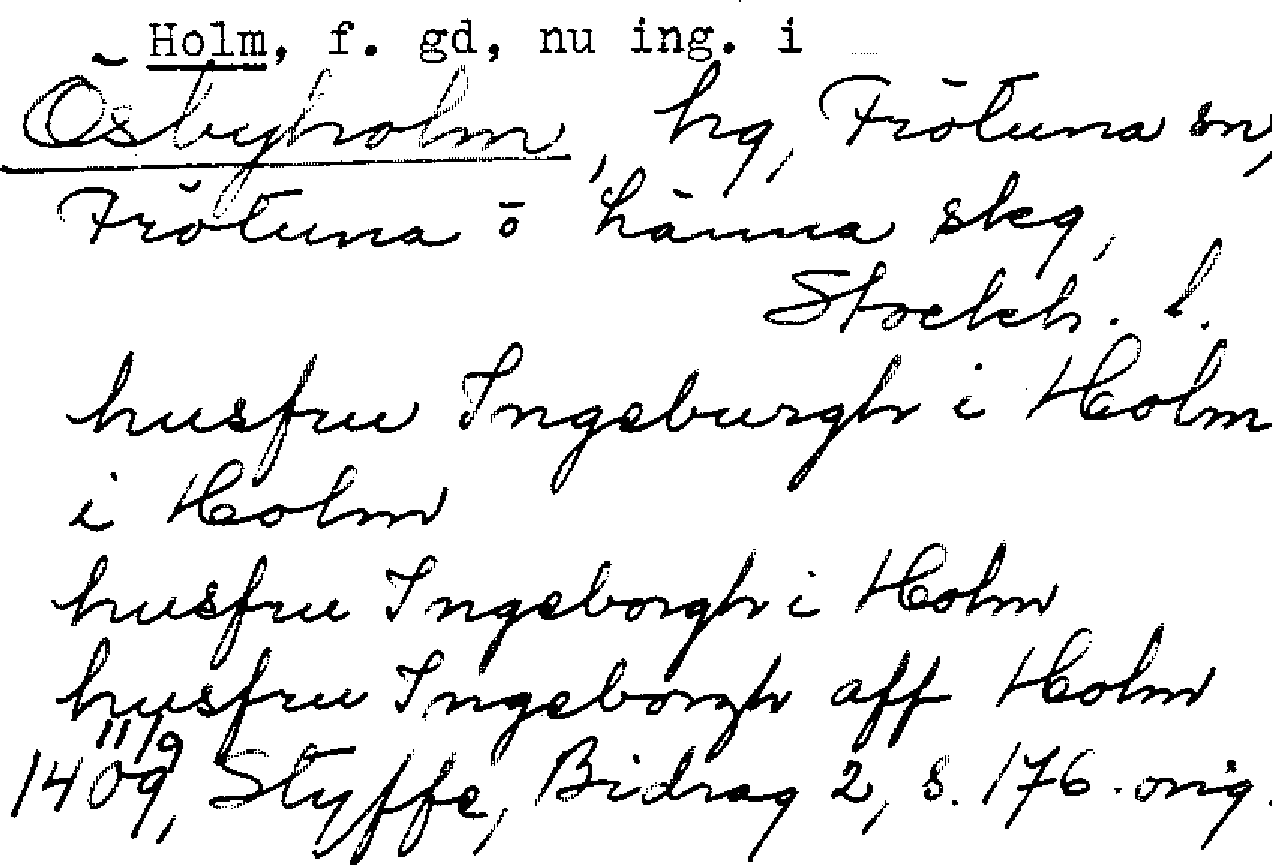 Holm, f. gd, nu ing. i
Ösbyholm, hg, Frötuna sn,
Frötuna o Länna skg,
Stockh. l.
husfru Ingeburgh i Holm
i Holm
husfru Ingeborgh i Holm
husfru Ingeborgh aff Holm
11/9
1409, Styffe, Bidrag 2, s. 176. orig.